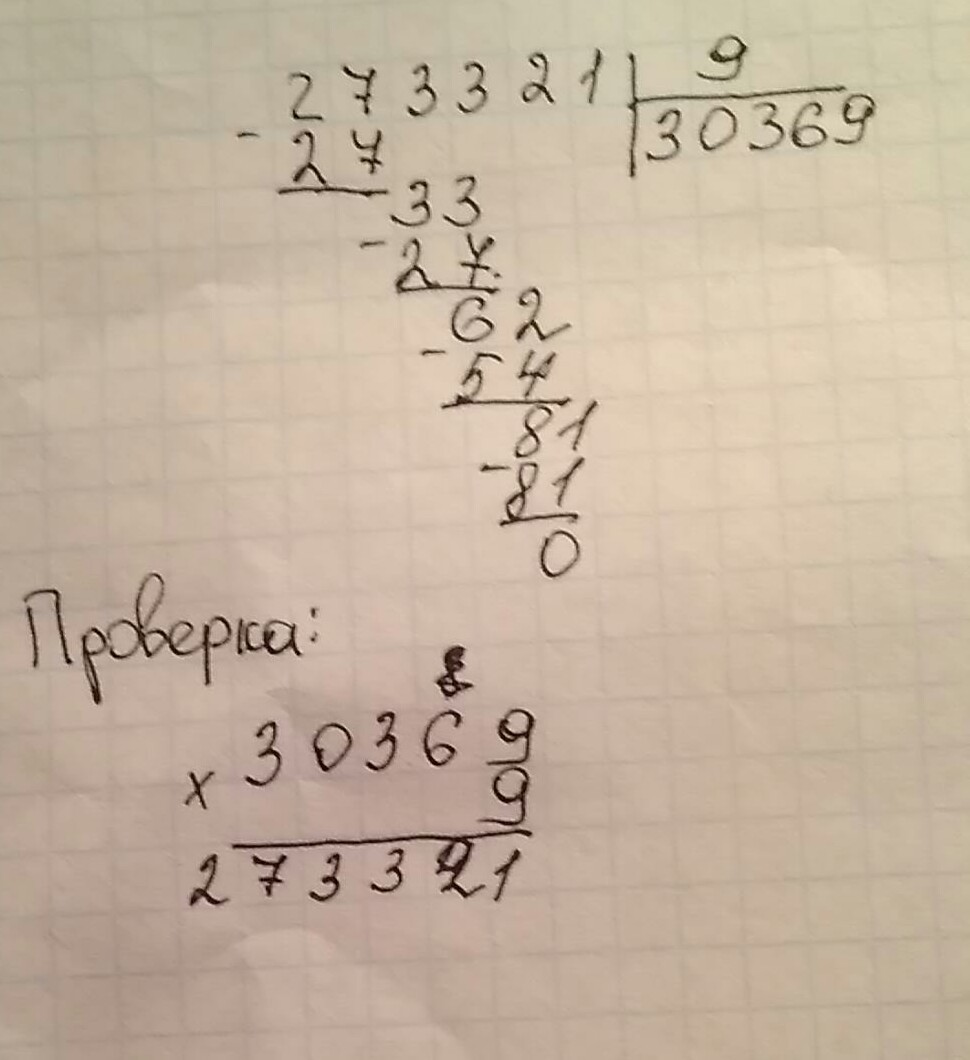 273321 | 9
- 27 | 30369
33
- 27
62
- 54
81
- 81
0
Проверка:
30369
x 9
273321